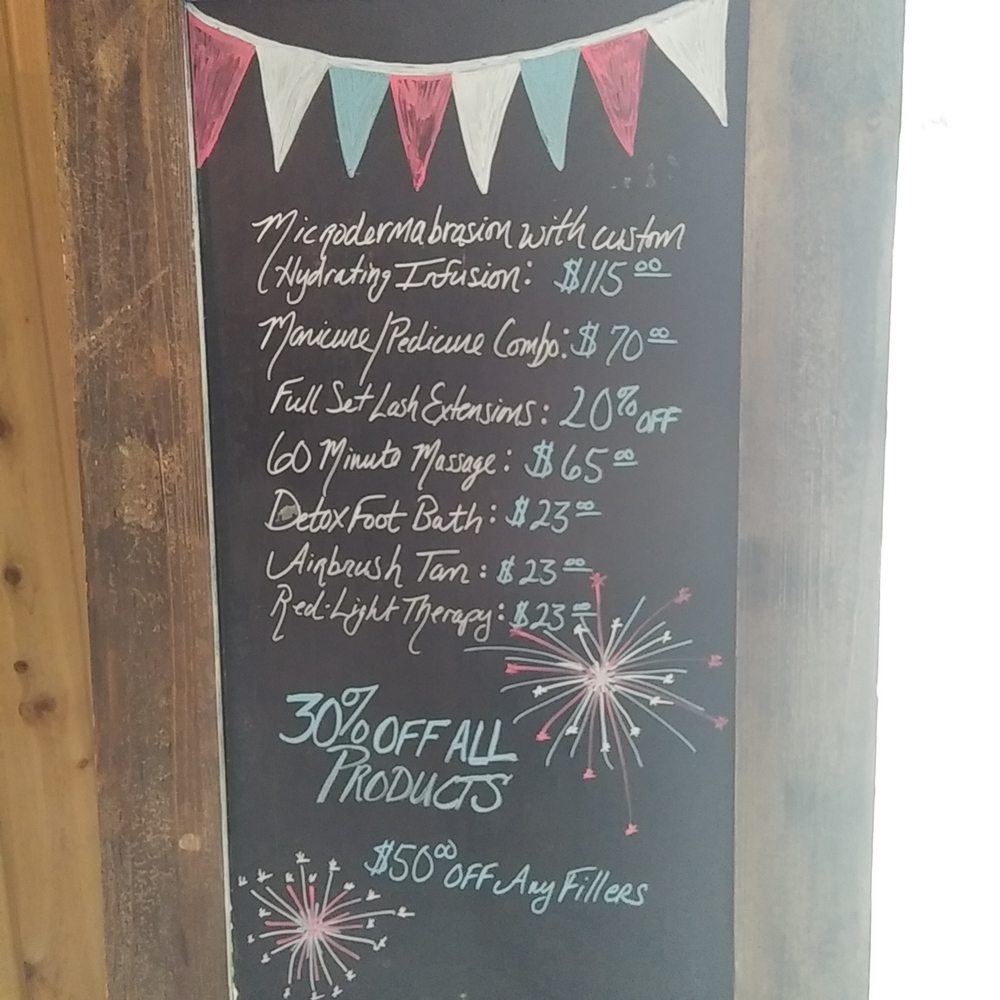 Microdermabrasion with custom
Hydrating Infusion: $115.00
Manicure/Pedicure Combo: $70.00
Full Set Lash Extensions: 20% OFF
60 Minute Massage: $65.00
Detox Foot Bath: $23.00
Airbrush Tan: $23.00
Red-Light Therapy: $23.00
30% OFF ALL
PRODUCTS
$50.00 OFF Any Fillers